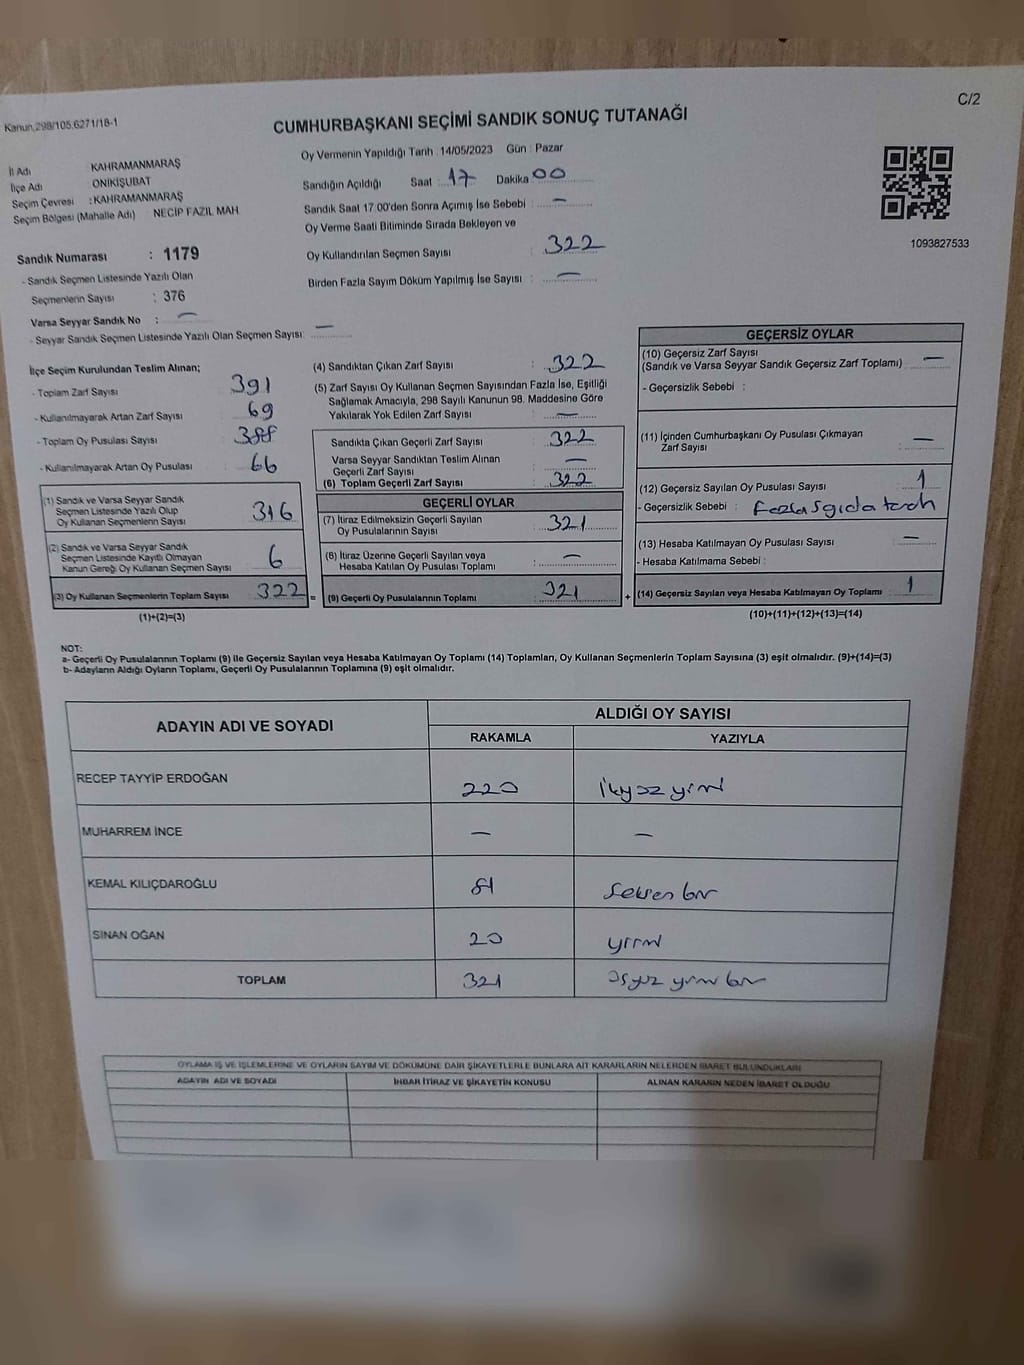 C/2
Kanun.298/105.6271/18-1
CUMHURBAŞKANI SEÇİMİ SANDIK SONUÇ TUTANAĞI
İl Adı KAHRAMANMARAŞ
İlçe Adı ONİKİŞUBAT
Seçim Çevresi : KAHRAMANMARAŞ
Seçim Bölgesi (Mahalle Adı) NECİP FAZIL MAH.
Sandık Numarası : 1179
- Sandık Seçmen Listesinde Yazılı Olan
Seçmenlerin Sayısı : 376
Varsa Seyyar Sandık No : —
- Seyyar Sandık Seçmen Listesinde Yazılı Olan Seçmen Sayısı: —
Oy Vermenin Yapıldığı Tarih : 14/05/2023 Gün : Pazar
Sandığın Açıldığı Saat : 17 Dakika 00
Sandık Saat 17:00'den Sonra Açımış İse Sebebi : —
Oy Verme Saati Bitiminde Sırada Bekleyen ve
Oy Kullandırılan Seçmen Sayısı : 322
Birden Fazla Sayım Döküm Yapılmış İse Sayısı : —
1093827533
İlçe Seçim Kurulundan Teslim Alınan;
- Toplam Zarf Sayısı : 391
- Kullanılmayarak Artan Zarf Sayısı : 69
- Toplam Oy Pusulası Sayısı : 388
- Kullanılmayarak Artan Oy Pusulası : 66
(1) Sandık ve Varsa Seyyar Sandık
Seçmen Listesinde Yazılı Olup
Oy Kullanan Seçmenlerin Sayısı : 316
(2) Sandık ve Varsa Seyyar Sandık
Seçmen Listesinde Kayıtlı Olmayan
Kanun Gereği Oy Kullanan Seçmen Sayısı : 6
(3) Oy Kullanan Seçmenlerin Toplam Sayısı : 322 =
(1)+(2)=(3)
(4) Sandıktan Çıkan Zarf Sayısı : 322
(5) Zarf Sayısı Oy Kullanan Seçmen Sayısından Fazla İse, Eşitliği
Sağlamak Amacıyla, 298 Sayılı Kanunun 98. Maddesine Göre
Yakılarak Yok Edilen Zarf Sayısı : —
Sandıkta Çıkan Geçerli Zarf Sayısı : 322
Varsa Seyyar Sandıktan Teslim Alınan
Geçerli Zarf Sayısı : —
(6) Toplam Geçerli Zarf Sayısı : 322
GEÇERLİ OYLAR
(7) İtiraz Edilmeksizin Geçerli Sayılan
Oy Pusulalarının Sayısı : 321
(8) İtiraz Üzerine Geçerli Sayılan veya
Hesaba Katılan Oy Pusulası Toplamı : —
(9) Geçerli Oy Pusulalarının Toplamı : 321 +
GEÇERSİZ OYLAR
(10) Geçersiz Zarf Sayısı
(Sandık ve Varsa Seyyar Sandık Geçersiz Zarf Toplamı) : —
- Geçersizlik Sebebi :
(11) İçinden Cumhurbaşkanı Oy Pusulası Çıkmayan
Zarf Sayısı : —
(12) Geçersiz Sayılan Oy Pusulası Sayısı : 1
- Geçersizlik Sebebi :
(13) Hesaba Katılmayan Oy Pusulası Sayısı : —
- Hesaba Katılmama Sebebi :
(14) Geçersiz Sayılan veya Hesaba Katılmayan Oy Toplamı : 1
(10)+(11)+(12)+(13)=(14)
NOT:
a- Geçerli Oy Pusulalarının Toplamı (9) ile Geçersiz Sayılan veya Hesaba Katılmayan Oy Toplamı (14) Toplamları, Oy Kullanan Seçmenlerin Toplam Sayısına (3) eşit olmalıdır. (9)+(14)=(3)
b- Adayların Aldığı Oyların Toplamı, Geçerli Oy Pusulalarının Toplamına (9) eşit olmalıdır.
ADAYIN ADI VE SOYADI ALDIĞI OY SAYISI
RAKAMLA YAZIYLA
RECEP TAYYİP ERDOĞAN 220 ikiyüz yirmi
MUHARREM İNCE — —
KEMAL KILIÇDAROĞLU 81 seksen bir
SİNAN OĞAN 20 yirmi
TOPLAM 321 üçyüz yirmi bir
OYLAMA İŞ VE İŞLEMLERİNE VE OYLARIN SAYIM VE DÖKÜMÜNE DAİR ŞİKAYETLERLE BUNLARA AİT KARARLARIN NELERDEN İBARET BULUNDUKLARI
ADAYIN ADI VE SOYADI İHBAR İTİRAZ VE ŞİKAYETİN KONUSU ALINAN KARARIN NEDEN İBARET OLDUĞU